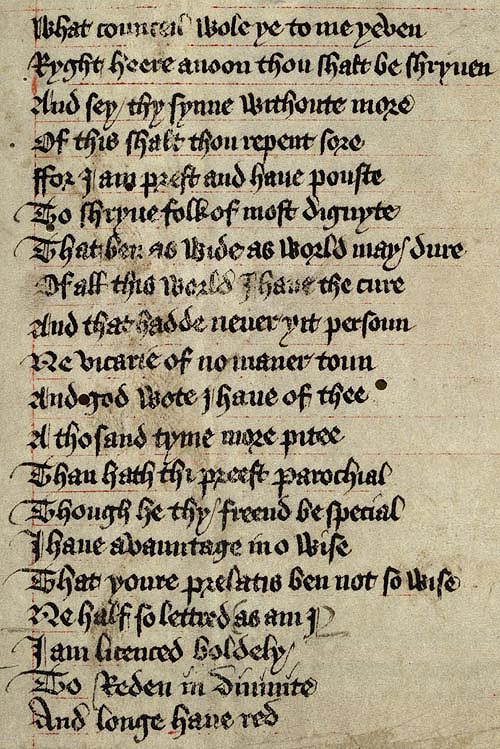 What counceil wole ye to me yeven
Ryght heere anoon thou shalt be shryuen
And sey thy synne withoute more
Of this shalt thou repent sore
ffor I am prest and haue pouste
To shryue folk of most dignyte
That ben as wide as world may dure
Of all this world I haue the cure
And that hadde neuer yit persoun
Ne vicarie of no maner toun
And god wote I haue of thee
A thosand tyme more pitee
Than hath thi preest parochial
Though he thy freend be special
I haue avauntage in o wise
That youre prelatis ben not so wise
Ne half so lettred as am I
I am licenced boldely
To Reden in Diuinite
And longe haue red